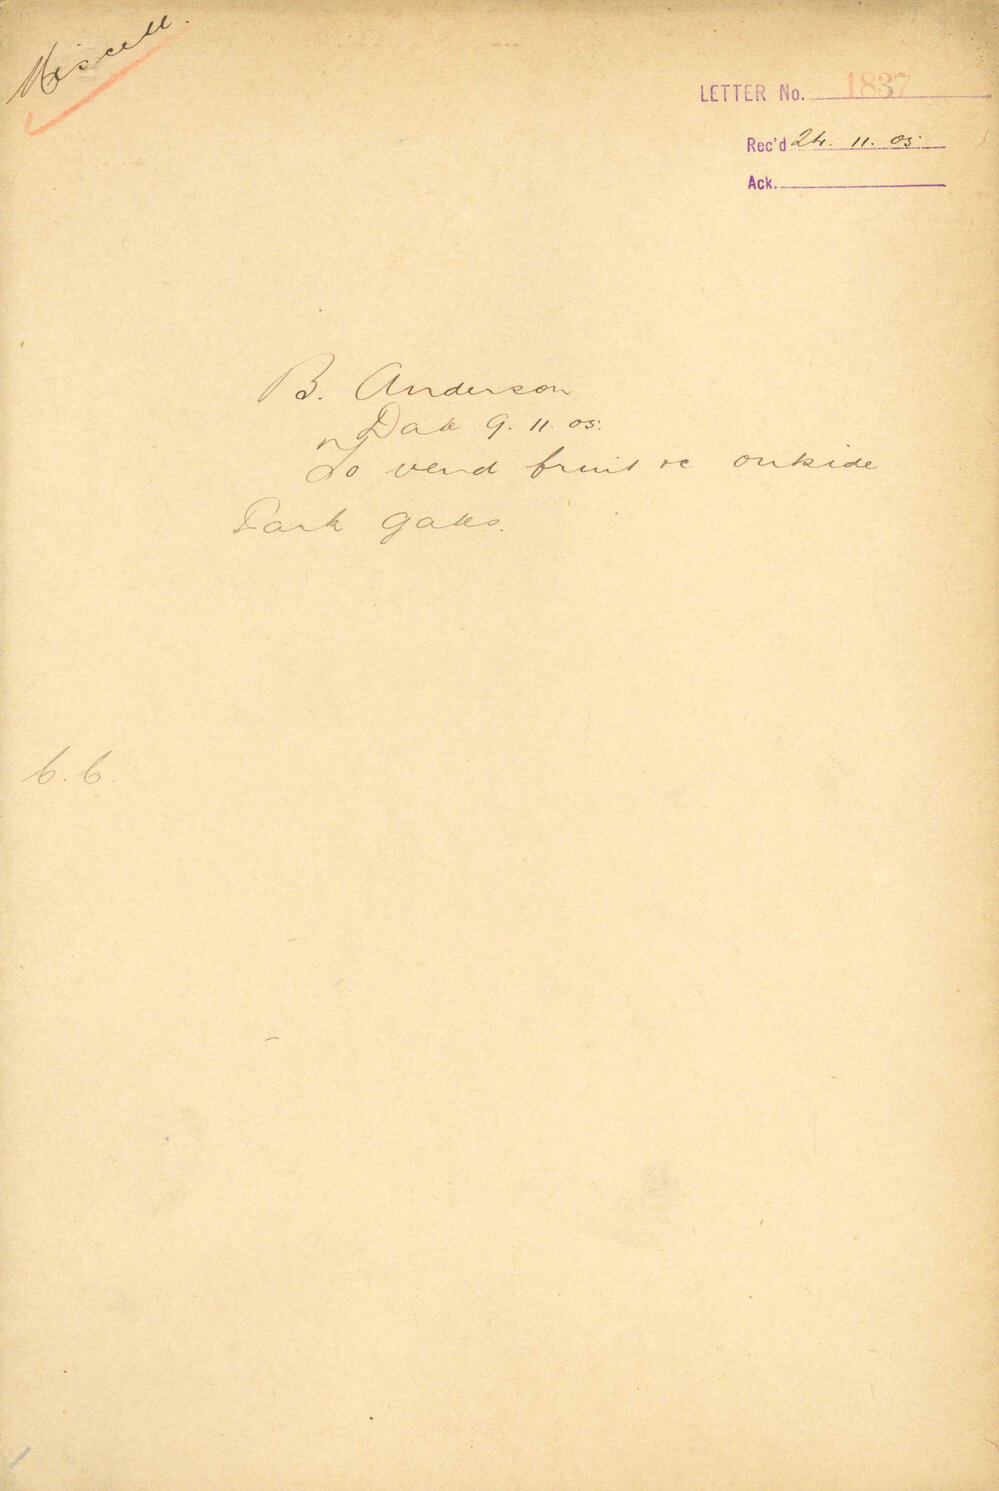 Miscell.
LETTER No. 1837
Rec'd 24. 11. 05.
Ack.
B. Anderson
Date 9. 11. 05.
To vend fruit &c outside
Park Gates.
C.C.